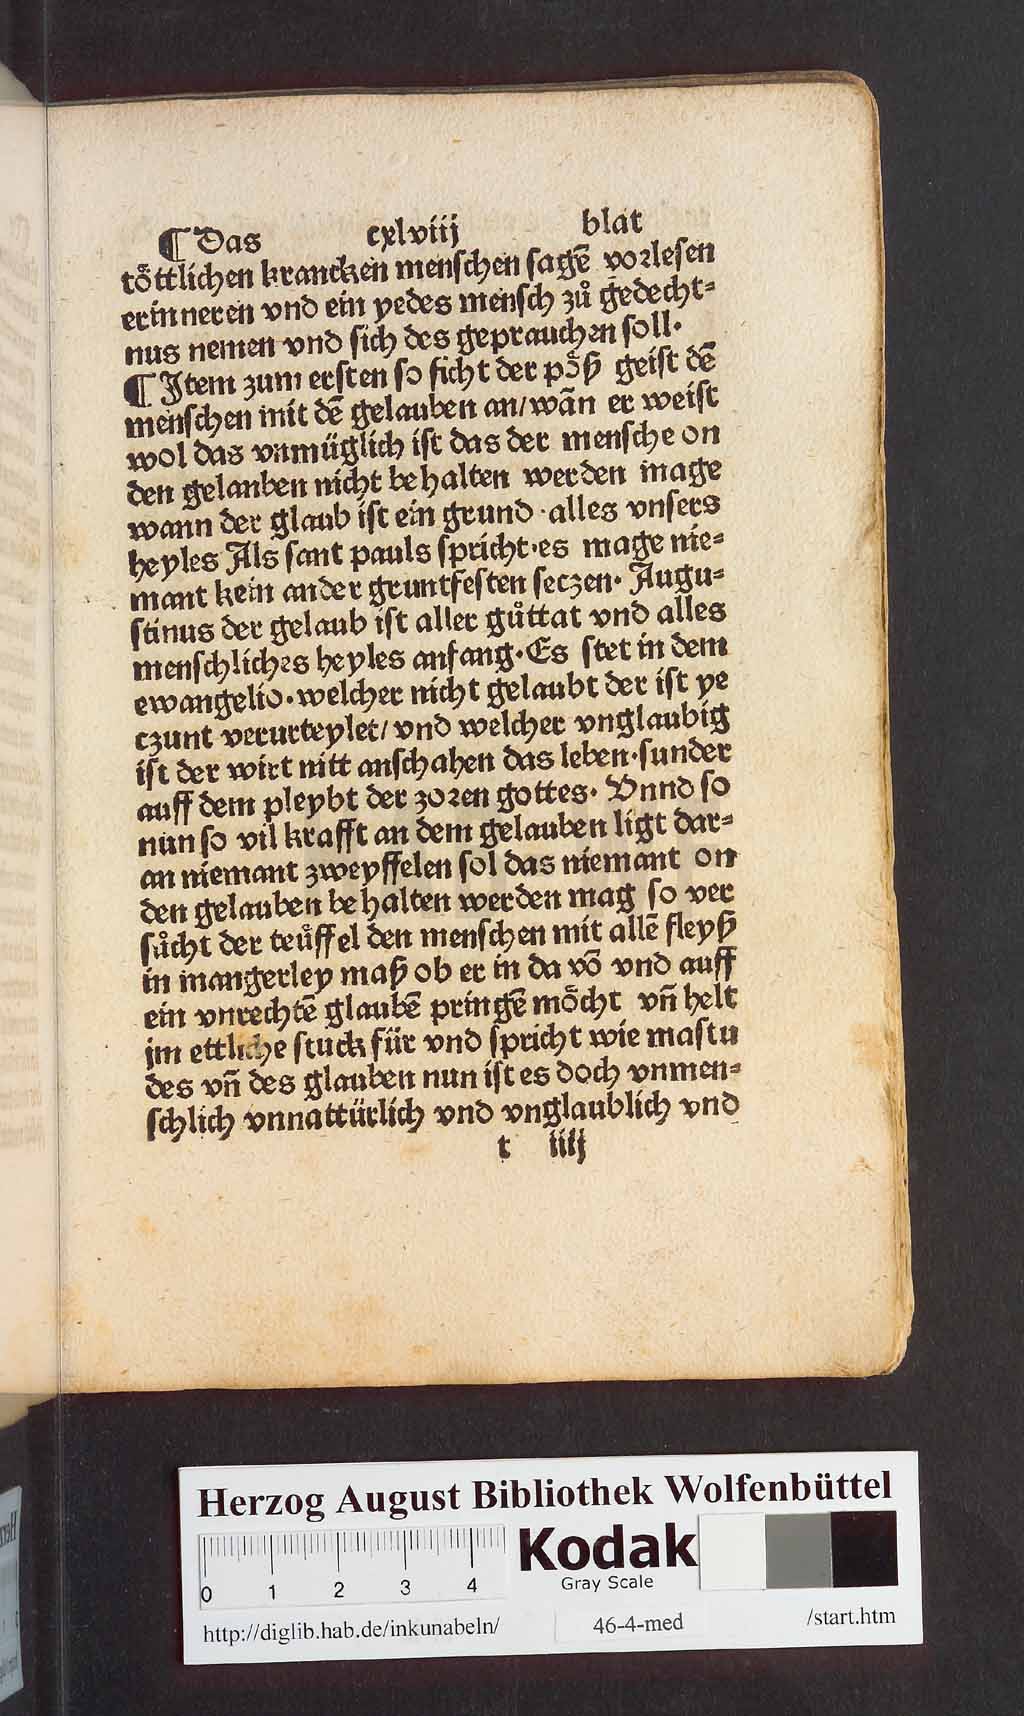 ¶ Das cxlviij blat
toͤttlichen krancken menschen sagē vorlesen
erinneren vnd ein yedes mensch zuͦ gedecht⸗
nus nemen vnd sich des geprauchen soll·
¶ Item zum ersten so ficht der poͤß geist dē
menschen mit dē gelauben an/ wān er weist
wol das vnmüglich ist das der mensche on
den gelanben nicht behalten werden mage
wann der glaub ist ein grund · alles vnsers
heyles Als sant pauls spricht· es mage nie⸗
mant kein ander gruntfesten seczen· Augu⸗
stinus der gelaub ist aller guͦttat vnd alles
menschliches heyles anfang· Es stet in dem
ewangelio· welcher nicht gelaubt der ist ye
czunt verurteylet/ vnd welcher vnglaubig
ist der wirt nitt anschahen das leben· sunder
auff dem pleybt der zoren gottes· Vnnd so
nun so vil krafft an dem gelauben ligt dar⸗
an niemant zweyffelen sol das niemant on
den gelauben behalten werden mag so ver
suͦcht der teuͤffel den menschen mit allē fleyß
in mangerley maß ob er in da vō vnd auff
ein vnrechtē glaubē pringē moͤcht vn̄ helt
jm ettliche stuck für vnd spricht wie mastu
des vn̄ des glauben nun ist es doch vnmen⸗
schlich vnnattürlich vnd vnglaublich vnd
t iiij
Herzog August Bibliothek Wolfenbüttel
0 1 2 3 4
Kodak
Gray Scale
http://diglib.hab.de/inkunabeln/ 46-4-med /start.htm